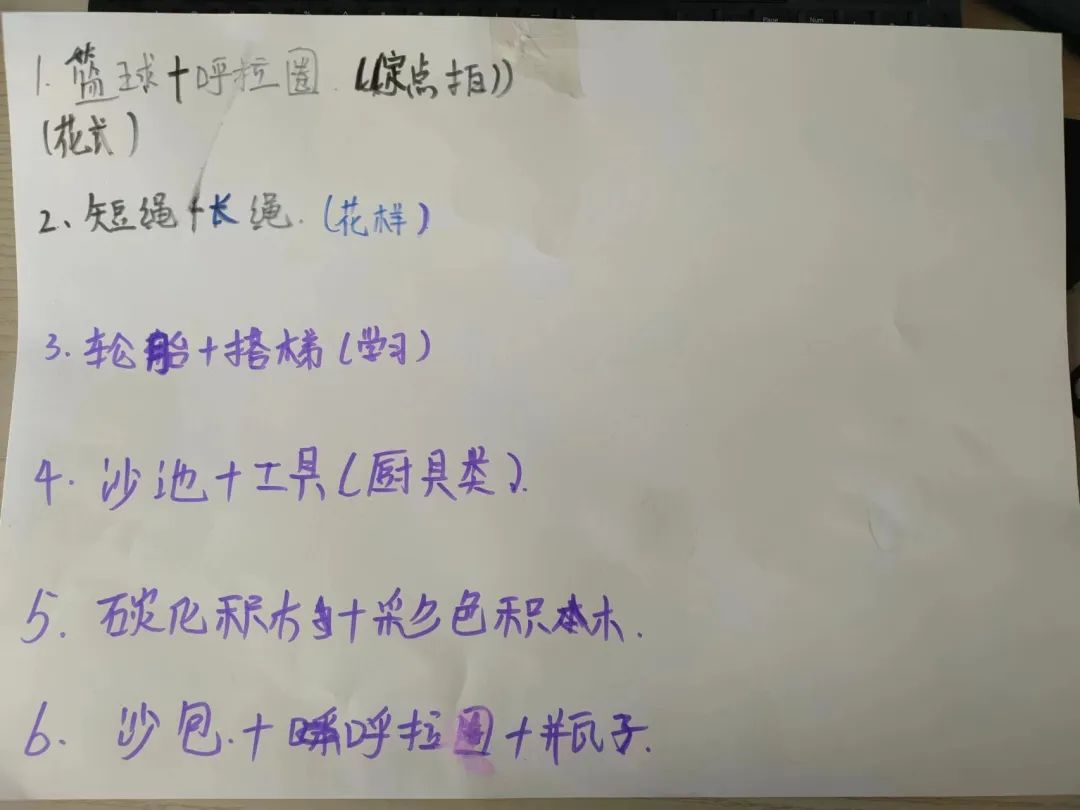 1. 篮球+呼拉圈.((定点拍))
(花式)
2、短绳+长绳.(花样)
3.轮船+搭梯(学习)
4.沙池+工具(厨具类).
5.碳化积木+彩色积木.
6.沙包.+呼拉圈+瓶子.